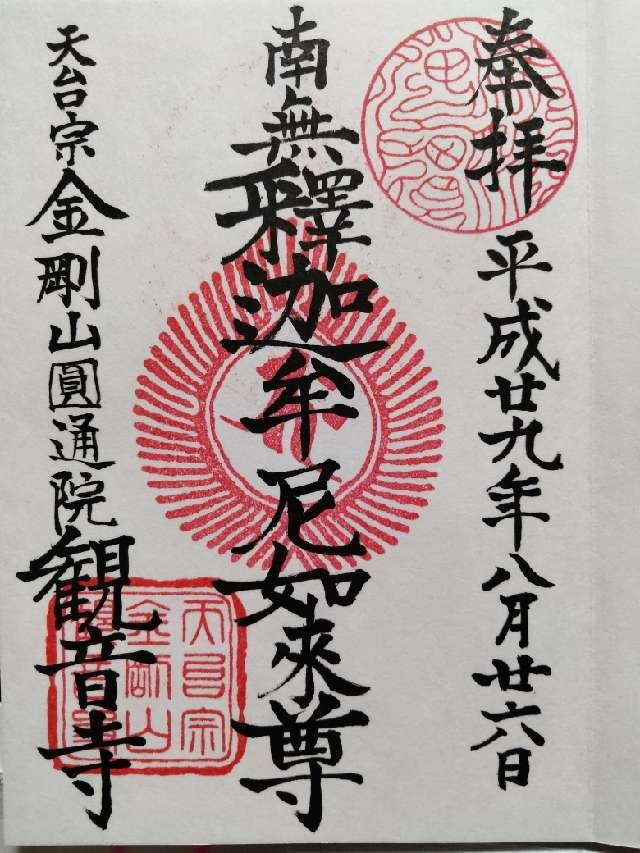 奉拝 平成廿九年八月廿六日
南無釋迦牟尼如來尊
天台宗金剛山圓通院観音寺
天台宗
金剛山
観音寺